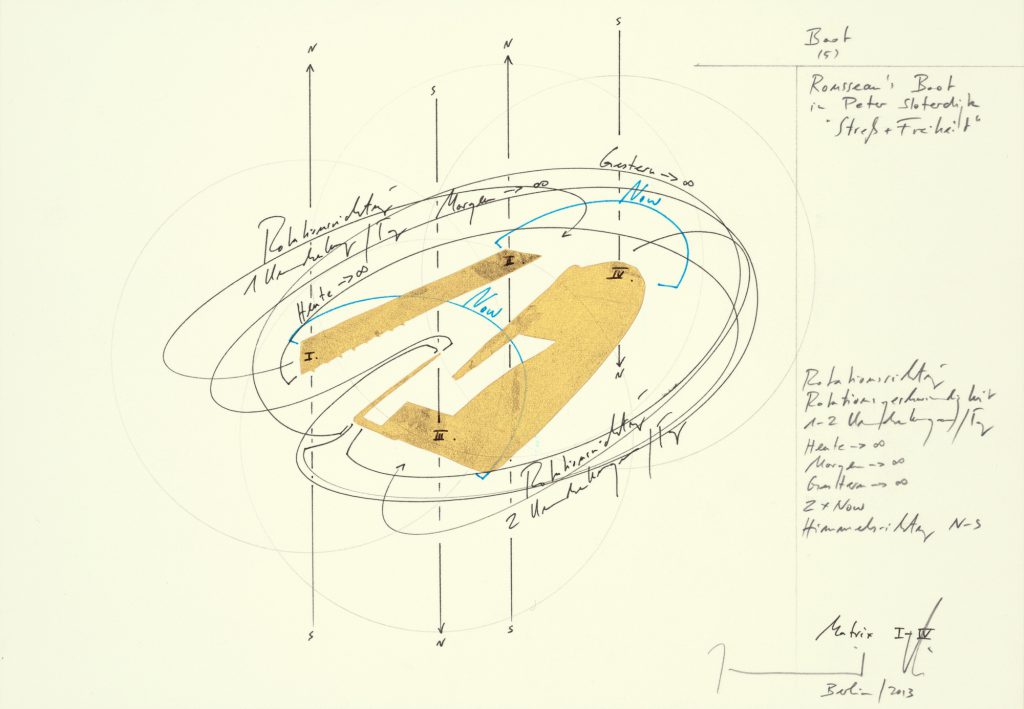 S
Boot
(5)
Rousseau's Boot
in Peter Sloterdijk
"Streß + Freiheit"
N
N
S
Gestern -> ∞
Now
Morgen -> ∞
Rotationsrichtung
1 Umdrehung/Tag
Heute -> ∞
Now
II.
IV.
I.
III.
N
Rotationsrichtung
2 Umdrehungen/Tag
Rotationsrichtung
Rotationsgeschwindigkeit
1-2 Umdrehungen/Tag
Heute -> ∞
Morgen -> ∞
Gestern -> ∞
2 x Now
Himmelsrichtung N-S
S
N
S
Matrix I-IV
Berlin/2013